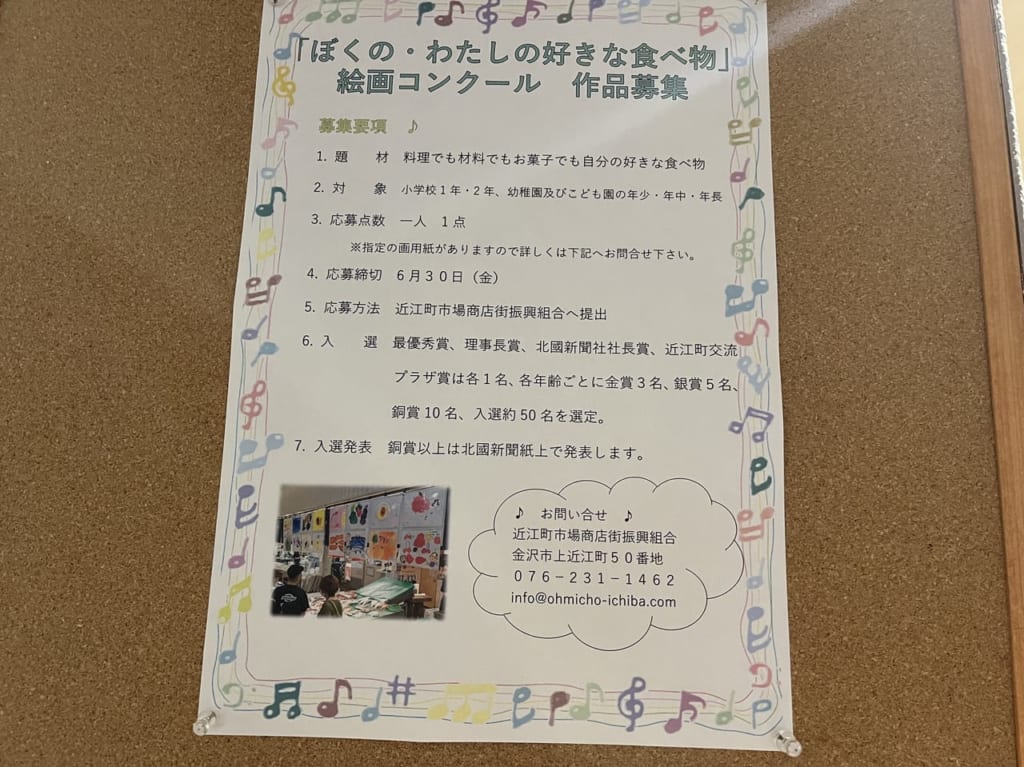 「ぼくの・わたしの好きな食べ物」
絵画コンクール　作品募集
募集要項　♪
1. 題　　材　料理でも材料でもお菓子でも自分の好きな食べ物
2. 対　　象　小学校1年・2年、幼稚園及びこども園の年少・年中・年長
3. 応募点数　一人　1点
※指定の画用紙がありますので詳しくは下記へお問合せ下さい。
4. 応募締切　6月30日（金）
5. 応募方法　近江町市場商店街振興組合へ提出
6. 入　　選　最優秀賞、理事長賞、北國新聞社社長賞、近江町交流
プラザ賞は各1名、各年齢ごとに金賞3名、銀賞5名、
銅賞10名、入選約50名を選定。
7. 入選発表　銅賞以上は北國新聞紙上で発表します。
♪　お問い合せ　♪
近江町市場商店街振興組合
金沢市上近江町50番地
076-231-1462
info@ohmicho-ichiba.com